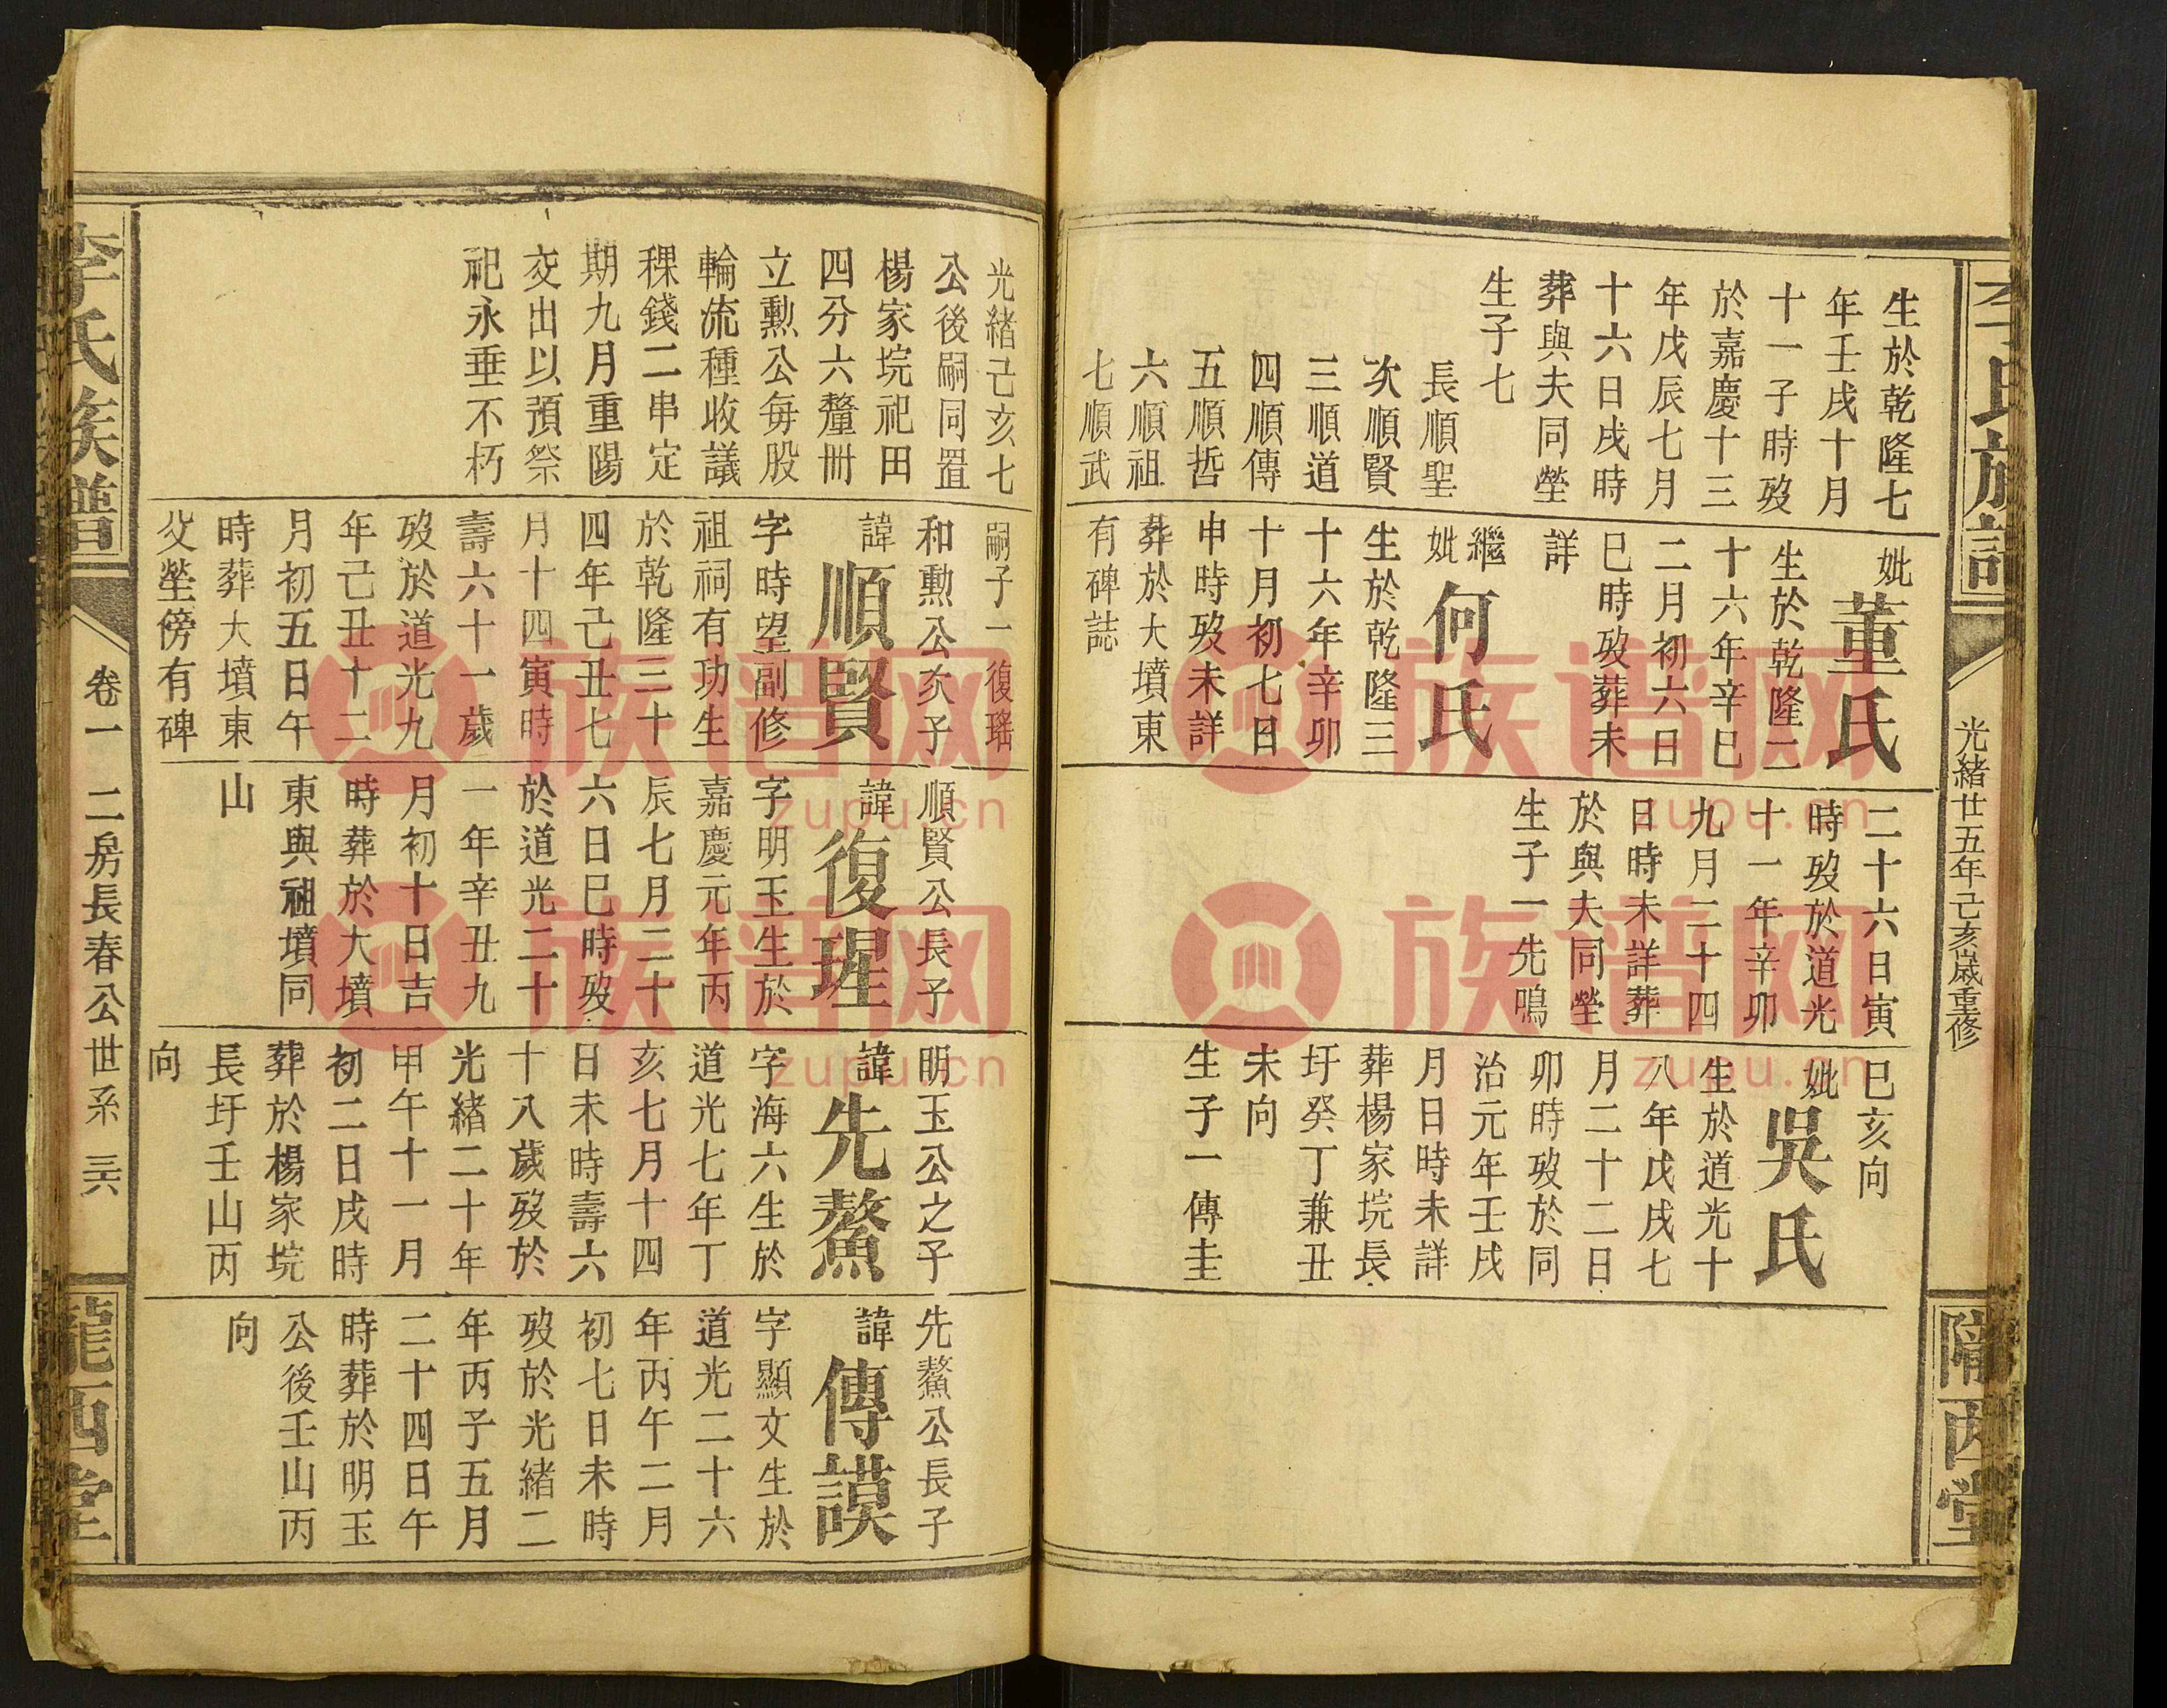 李氏族譜
光緒廿五年己亥歲重修
隴西堂
生於乾隆七
年壬戌十月
十一子時歿
於嘉慶十三
年戊辰七月
十六日戌時
葬與夫同塋
生子七
長順聖
次順賢
三順道
四順傳
五順哲
六順祖
七順武
妣董氏
生於乾隆二
十六年辛巳
二月初六日
巳時歿葬未
詳
繼妣何氏
生於乾隆三
十六年辛卯
十月初七日
申時歿未詳
葬於大墳東
有碑誌
二十六日寅
時歿於道光
十一年辛卯
九月二十四
日時未詳葬
於與夫同塋
生子一先鳴
巳亥向
妣吳氏
生於道光十
八年戊戌七
月二十二日
卯時歿於同
治元年壬戌
月日時未詳
葬楊家垸長
圩癸丁兼丑
未向
生子一傳圭
光緒己亥七
公後嗣同置
楊家垸祀田
四分六釐冊
立勳公每股
輪流種收議
稞錢二串定
期九月重陽
交出以預祭
祀永垂不朽
嗣子一復瑤
和勳公次子
諱順賢
字時望副修
祖祠有功生
於乾隆三十
四年己丑七
月十四寅時
壽六十一歲
歿於道光九
年己丑十二
月初五日午
時葬大墳東
父塋傍有碑
順賢公長子
諱復瑆
字明玉生於
嘉慶元年丙
辰七月二十
六日巳時歿
於道光二十
一年辛丑九
月初十日吉
時葬於大墳
東與祖墳同
山
明玉公之子
諱先鰲
字海六生於
道光七年丁
亥七月十四
日未時壽六
十八歲歿於
光緒二十年
甲午十一月
初二日戌時
葬於楊家垸
長圩壬山丙
向
先鰲公長子
諱傳謨
字顯文生於
道光二十六
年丙午二月
初七日未時
歿於光緒二
年丙子五月
二十四日午
時葬於明玉
公後壬山丙
向
李氏族譜
卷一 二房長春公世系 三六
隴西堂
族谱网
zupu.cn
族谱网
zupu.cn
族谱网
zupu.cn
族谱网
zupu.cn